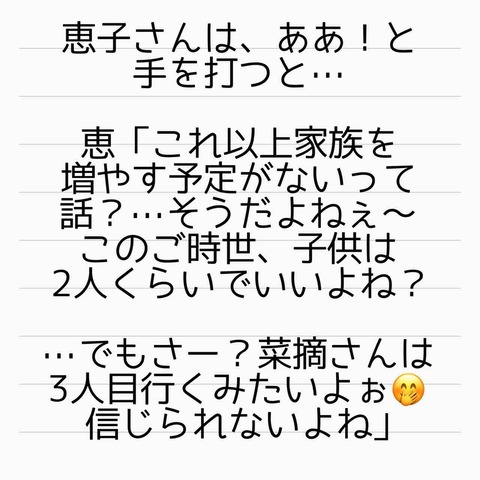 恵子さんは、ああ！と
手を打つと…
恵「これ以上家族を
増やす予定がないって
話？…そうだよねぇ〜
このご時世、子供は
2人くらいでいいよね？
…でもさー？菜摘さんは
3人目行くみたいよぉ🤭
信じられないよね」